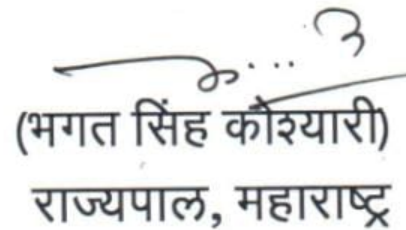 (भगत सिंह कौश्यारी)
राज्यपाल, महाराष्ट्र